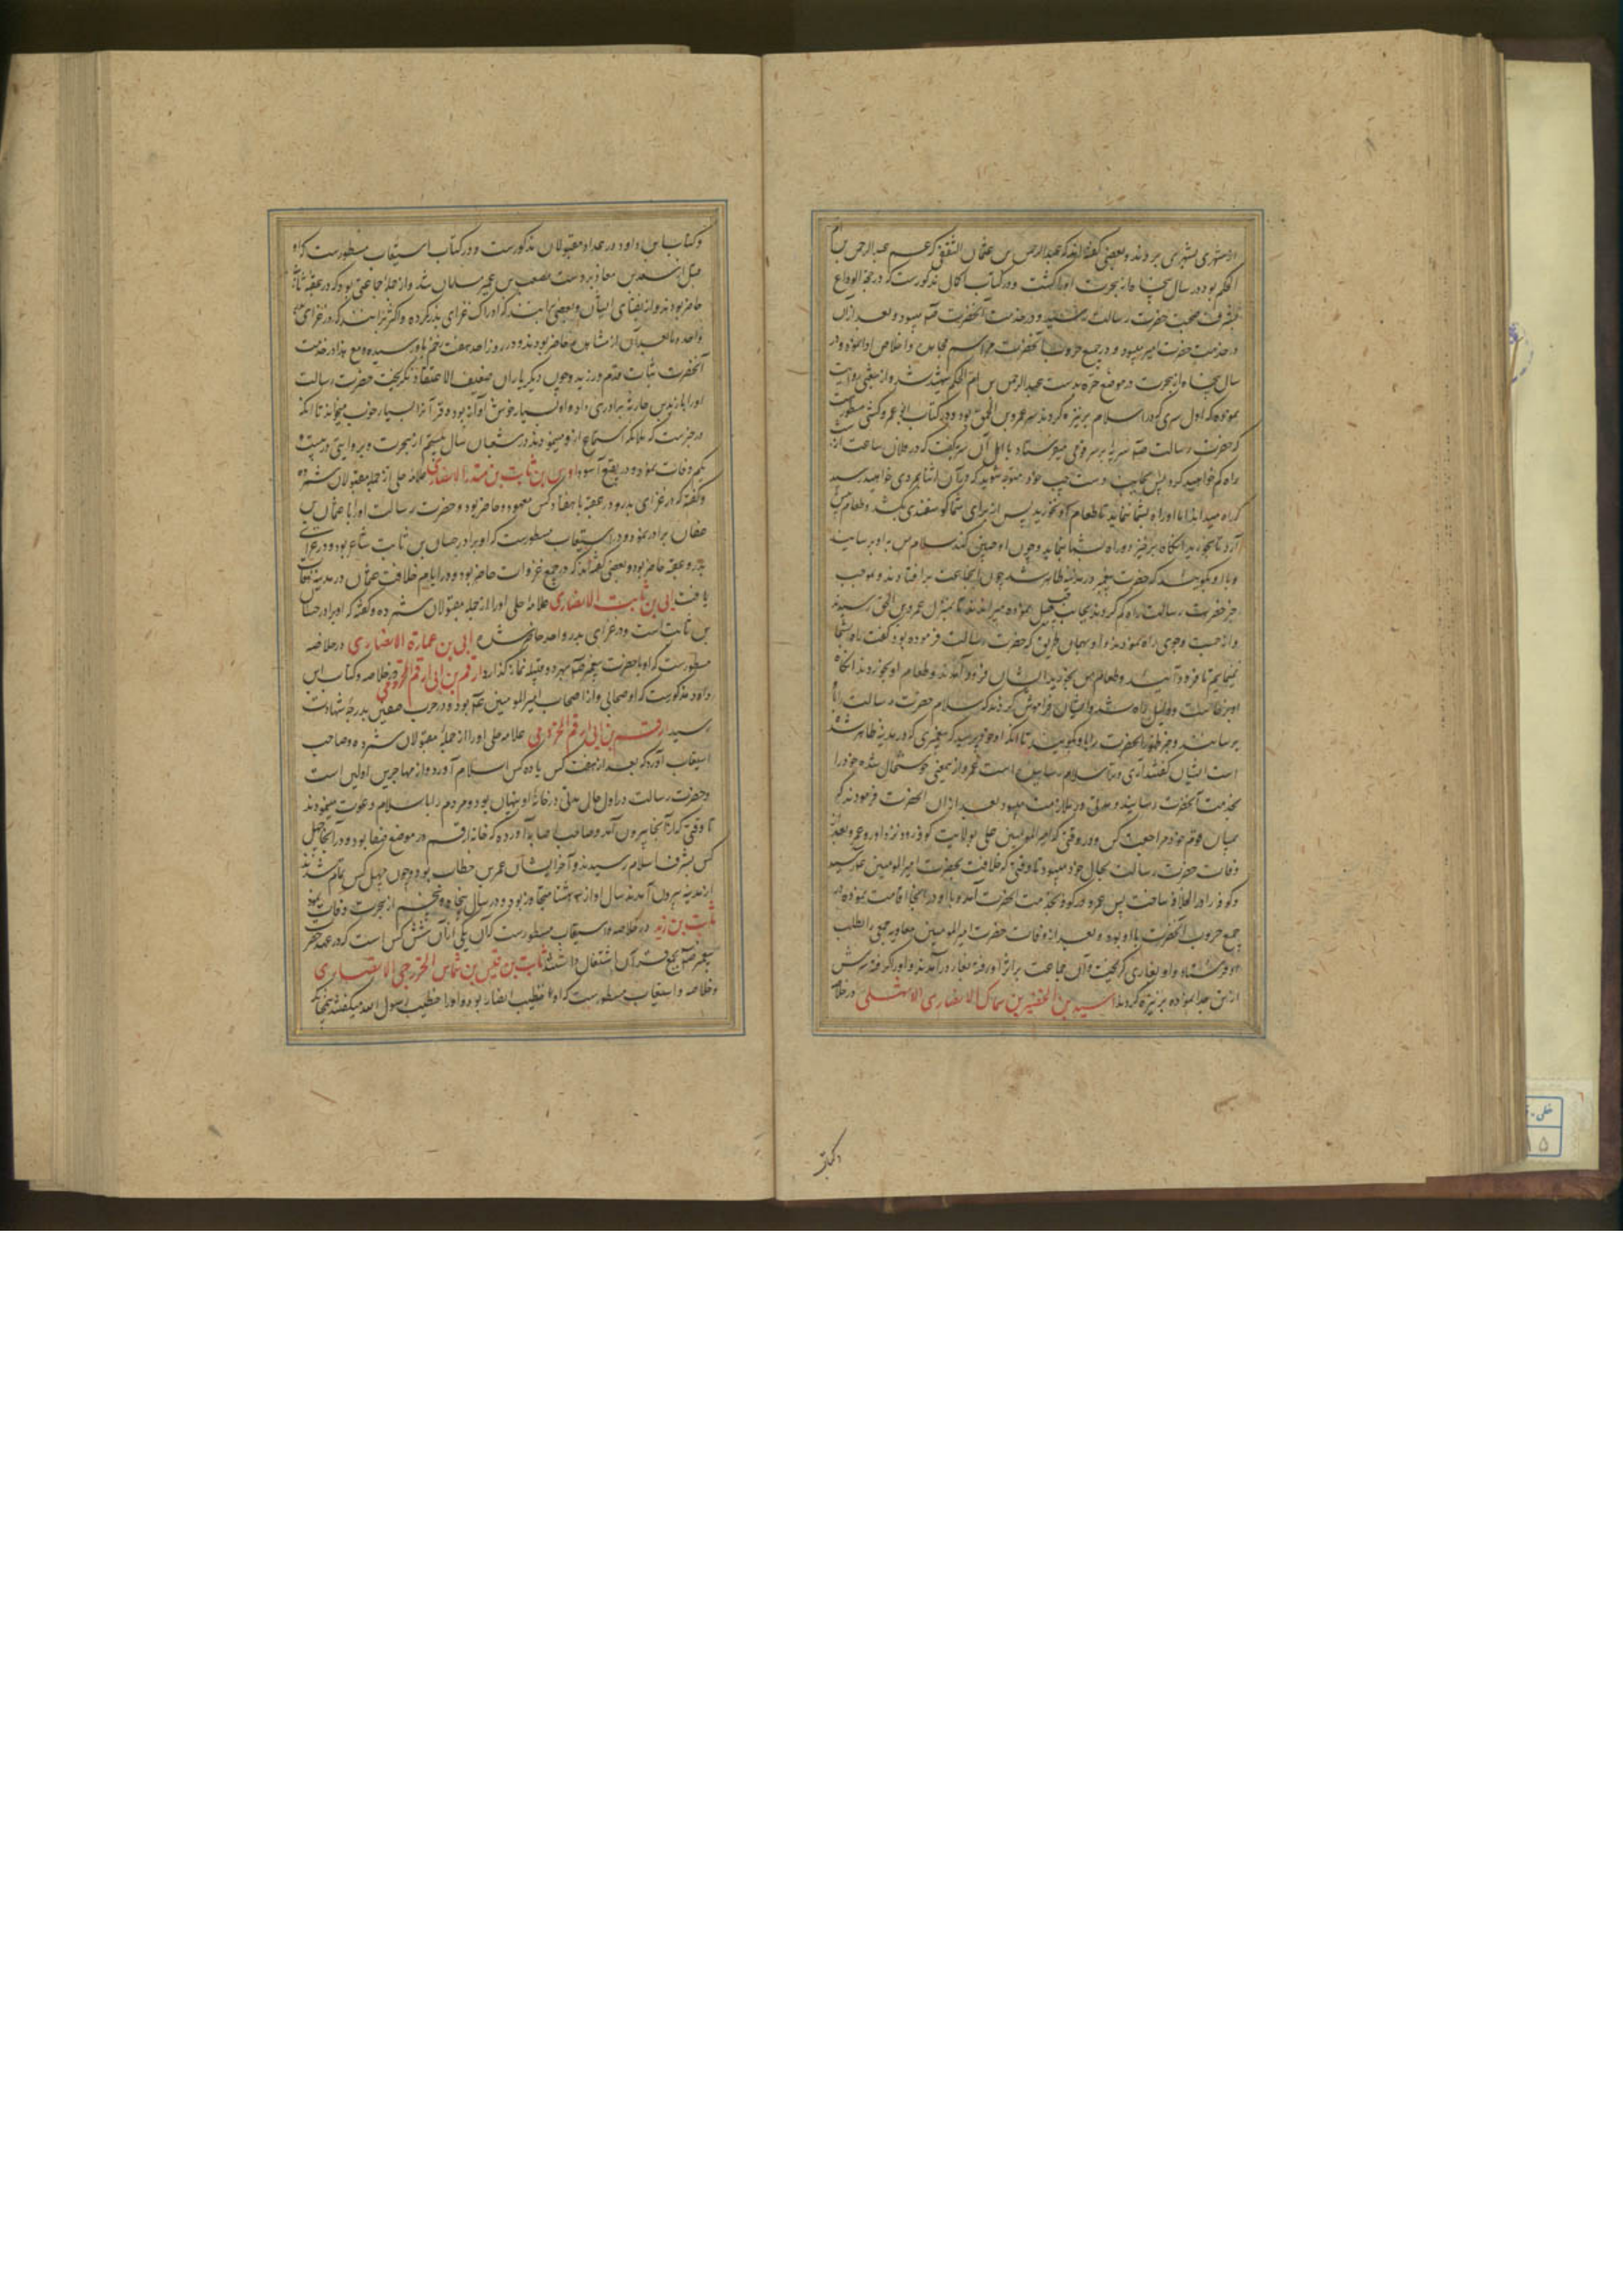 از شهری بشهری بردند و بعضی گفته‌اند که عبدالرحمن بن عثمان الثقفی که عم عبدالرحمن بن ام
الحکم بود در سال پنجاه از هجرت او را کشت و در کتاب کامل مذکورست که در حجة الوداع
بشرف صحبت حضرت رسالت رسید و در خدمت آنحضرت می بود و بعد از آن
در خدمت حضرت امیر میبود و در جمیع حروب آنحضرت مراسم و اخلاص واد نموده و در
سال پنجاه از هجرت در موضع بدست عبدالرحمن بن ام الحکم شهید شد و از بعضی روایت
نموده که اول سری که در اسلام بر نیزه کردند سر عمرو بن الحمق بود و در کتاب ابی عمرو کشی مسطور است
که حضرت رسالت سریه بر سر قومی میفرستاد با اهل آن سریه گفت که در فلان ساعت از شب
راه گم خواهید کرد پس بجانب دست چپ خود متوجه شوید که در آن اثنا بمردی خواهید رسید
که راه شما نماید تا طعام او نخورید پس او برای شما گوسفندی بکشد و طعام پیش
آرد تا بخورید آنگاه برخیزد و راه بشما نماید و چون او چنین کند سلام من باو برسانید
و باو بگویید که حضرت پیغمبر در مدینه ظاهر شد چون آنجماعت براه افتادند و بموجب
خبر حضرت رسالت راه گم کردند بجانب چپ میل نموده میراندند تا بمنزل عمرو بن الحمق رسیدند
و از راه نمودند و او بهمان طریق که حضرت رسالت فرموده بود گفت راه بشما
نمی نمایم تا فرود آیید و طعام من بخورید ایشان فرود آمدند و طعام او بخوردند آنگاه
او برخاست و دلیل راه شد و ایشان فراموش کردند که سلام حضرت رسالت را باو
برسانند و خبر ظهور آنحضرت را باو بگویند تا آنکه او خود پرسید که پیغمبری که در مدینه ظاهر شد
است ایشان گفتند آری و سلام رسانیدند عمرو از معنی خوشحال شده خود را
بخدمت آنحضرت رسانید و مدتی در ملازمت میبود بعد از آن آنحضرت فرمودند که
بمیان قوم خود مراجعت کن و در وقتی که امیرالمومنین علی بولایت کوفه رود نزد او رو عمرو بعد از
وفات حضرت رسالت بحال خود میبود تا وقتی که خلافت بحضرت امیرالمومنین رسید
و کوفه را دار الخلافه ساخت پس عمرو در کوفه بخدمت آنحضرت آمد و با او در آنجا اقامت نموده در
جمیع حروب آنحضرت با او بود و بعد از وفات حضرت امیرالمومنین معاویه جمعی را بطلب
او فرستاد و او بغاری گریخت و آن جماعت براثر او رفته بغار در آمدند و او را گرفته سرش
از تن جدا نموده بر نیزه کردند اسید بن الحضیر بن سماک الانصاری الاشهلی در خلاصه
و کتاب
و کتاب ابن داود در عداد مقبولان مذکورست و در کتاب استیعاب مسطورست که او
قبل از سعد بن معاذ بر دست مصعب بن عمیر مسلمان شد و از جمله جماعتی بود که در عقبه ثانیه
حاضر بودند و از نقبای ایشان و بعضی برآنند که ادراک غزای بدر کرده و اکثر برانند که در غزای
و احد و مابعد آن از مشاهد حاضر بودند و در روز احد هفت زخم باو رسیده و مع هذا در خدمت
آنحضرت ثبات قدم ورزید و چون دیگر یاران ضعیف الاعتقاد نگریخت حضرت رسالت
او را با زید بن حارثه برادری داد و او بسیار خوش آواز بود و قرآن را بسیار خوب میخواند تا آنکه
در خبرست که ملائکه استماع از او مینمودند در شعبان سال بیستم از هجرت و بروایتی در بیست و
یکم وفات نمود و در بقیع آسود اوس بن ثابت بن منذر الانصاری علامه حلی از جمله مقبولان شمرده
و گفته که در غزای بدر و در عقبه با هفتاد کس معهود حاضر بود و حضرت رسالت او را با عثمان بن
عفان برادر نمود و در استیعاب مسطورست که او برادر حسان بن ثابت شاعر بود و در غزای
بدر و عقبه حاضر بود و بعضی گفته‌اند که در جمیع غزوات حاضر بود و در ایام خلافت عثمان در مدینه وفات
یافت ابی بن ثابت الانصاری علامه حلی او را از جمله مقبولان شمرده و گفته که او برادر حسان
بن ثابت است و در غزای بدر و احد حاضر شده ابی بن عمارة الانصاری در خلاصه
مسطورست که او با حضرت پیغمبر بهر دو قبله نماز گذارد ارقم بن ابی ارقم المخزومی در خلاصه و کتاب ابن
داود مذکورست که او صحابی و از اصحاب امیرالمومنین بوده در حرب صفین بدرجه شهادت
رسید ارقم بن ابی ارقم المخزومی علامه حلی او را از جمله مقبولان شمرده و صاحب
استیعاب آورده که بعد از هفت کس یا ده کس اسلام آورد و از مهاجرین اولین است
و حضرت رسالت در اول حال مدتی در خانه او پنهان بود و مردم را باسلام دعوت مینمودند
تا وقتی که از آنجا بیرون آمد و صاحب اصابه آورده که خانه ارقم در موضع صفا بود و در آنجا چهل
کس بشرف اسلام رسیدند و آخر ایشان عمر بن خطاب بود و چون چهل کس تمام شدند
از مدینه بیرون آمدند سال او از متجاوز بود و در سال پنجاه و پنجم از هجرت وفات نمود
ثابت بن زید در خلاصه و استیعاب مسطورست که آن یکی از آن شش کس است که در عهد حضرت
پیغمبر بجمع قرآن اشتغال داشتند ثابت بن قیس بن شماس الخزرجی الانصاری
در خلاصه و استیعاب مسطورست که او خطیب انصار بود و او را خطیب رسول الله میگفتند چنانکه
خطی
۱۵